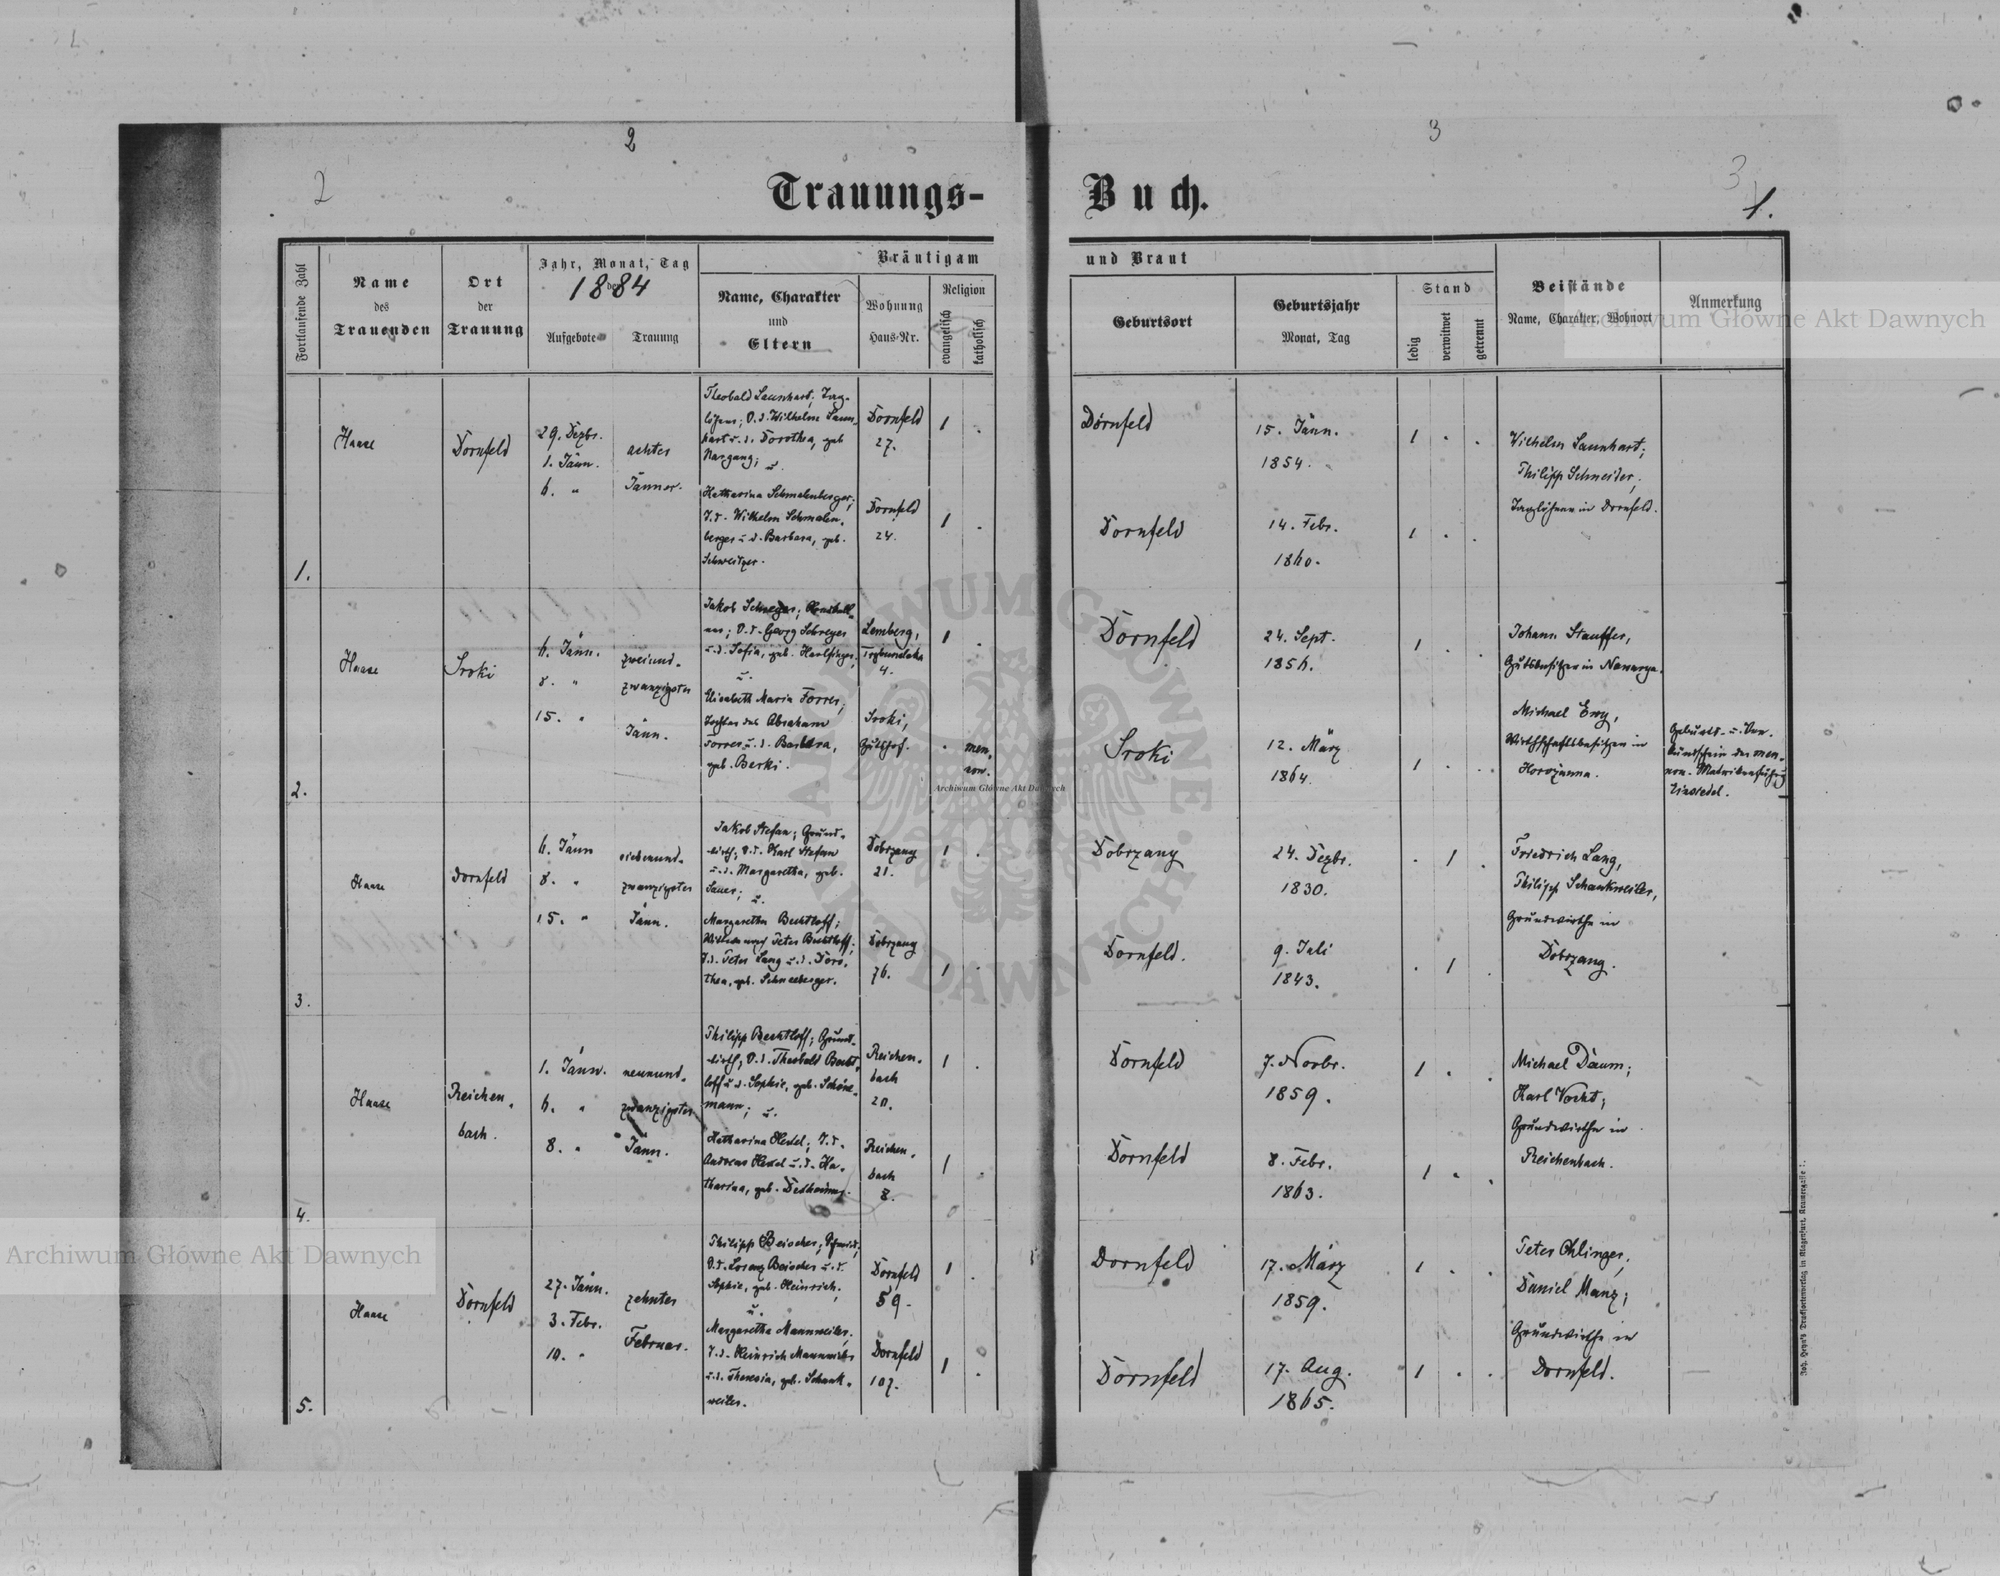 2
3
2
3
1.
Trauungs-
Buch.
Fortlaufende Zahl
Name
des
Trauenden
Ort
der
Trauung
Jahr, Monat, Tag
der
1884
Aufgebote
Trauung
Bräutigam
und Braut
Name, Charakter
und
Eltern
Wohnung
Haus-Nr.
Religion
evangelisch
katholisch
Geburtsort
Geburtsjahr
Monat, Tag
Stand
ledig
verwitwet
getrennt
Beistände
Name, Charakter, Wohnort
Anmerkung
1.
Haase
Dornfeld
29. Dezbr.
1. Jänn.
6. "
achter
Jänner.
Theobald Launhart; Tag-
löhner; S. d. Wilhelm Laun-
hart u. d. Dorothea, geb.
Nargang; u.
Katharina Schmalenberger;
T. d. Wilhelm Schmalen-
berger u. d. Barbara, geb.
Schweitzer.
Dornfeld
27.
Dornfeld
24.
Dornfeld
15. Jänn.
1854.
Dornfeld
14. Febr.
1860.
Wilhelm Launhart;
Philipp Schneider;
Taglöhner in Dornfeld.
2.
Haase
Sroki
6. Jänn.
8. "
15. "
zweiund-
zwanzigster
Jänn.
Jakob Schreyer;
S. d. Georg Schreyer
u. d. Sofia, geb.
u.
Elisabeth Maria Forrer;
Tochter des Abraham
Forrer u. d. Barbara,
geb. Berki.
Lemberg,
4.
Sroki,
Gutshof.
men-
non.
Dornfeld
24. Sept.
1856.
Sroki
12. März
1864.
Johann Stauffer,
Gutsbesitzer in Nawarya.
Michael Ewy,
Wirthschaftsbesitzer in
Horozanna.
Geburts- u. Ver-
kündschein der men-
non. Matrikenführung
Einsiedel.
3.
Haase
Dornfeld
6. Jänn
8. "
15. "
siebenund-
zwanzigster
Jänn.
Jakob Stefan; Grund-
wirth; S. d. Karl Stefan
u. d. Margaretha, geb.
Sauer; u.
Margaretha Bechtloff;
Witwe nach Peter Bechtloff;
T. d. Peter Lang u. d. Doro-
thea, geb. Schneeberger.
Dobrzany
21.
Dobrzany
76.
Dobrzany
24. Dezbr.
1830.
Dornfeld.
9. Juli
1843.
Friedrich Lang,
Philipp Schankweiler,
Grundwirthe in
Dobrzany.
4.
Haase
Reichen-
bach.
1. Jänn.
6. "
8. "
neunund-
zwanzigster
Jänn.
Philipp Bechtloff; Grund-
wirth; S. d. Theobald Becht-
loff u. d. Sophie, geb. Schöne-
mann; u.
Katharina Hexel; T. d.
Andreas Hexel u. d. Ka-
tharina, geb.
Reichen-
bach
20.
Reichen-
bach
8.
Dornfeld
7. Novbr.
1859.
Dornfeld
8. Febr.
1863.
Michael Daum;
Karl Vocht;
Grundwirthe in
Reichenbach.
5.
Haase
Dornfeld
27. Jänn.
3. Febr.
10. "
zehnter
Februar.
Philipp Beischer; Schmid;
S. d. Lorenz Beischer u. d.
Sophie, geb. Heinrich;
u.
Margaretha Mannweiler;
T. d. Heinrich Mannweiler
u. d. Theresia, geb. Schank-
weiler.
Dornfeld
59.
Dornfeld
107.
Dornfeld
17. März
1859.
Dornfeld
17. Aug.
1865.
Peter Ohlinger;
Daniel Manz;
Grundwirthe in
Dornfeld.
Joh. Heyn's Drucksortenverlag in Klagenfurt, Kramergasse
Archiwum Główne Akt Dawnych
Archiwum Główne Akt Dawnych
Archiwum Główne Akt Dawnych
ARCHIWUM GŁÓWNE AKT DAWNYCH